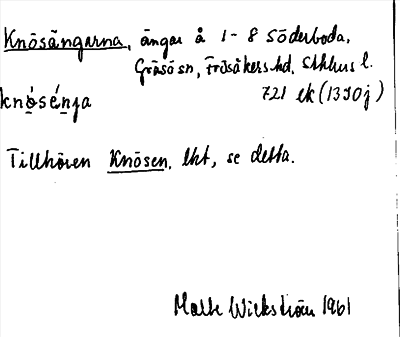 Knösängarna, ängar å 1-8 Söderboda,
Gräsö sn, Frösåkers hd, Sthlms l.
721 ek (13I0j)
knósénja
Tillhören Knösen, lht, se detta.
Malte Wickström 1961